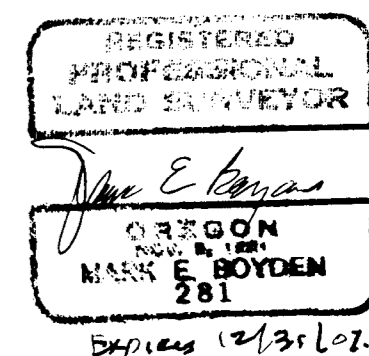 REGISTERED
PROFESSIONAL
LAND SURVEYOR
OREGON
MARK E BOYDEN
281
Expires 12/31/07